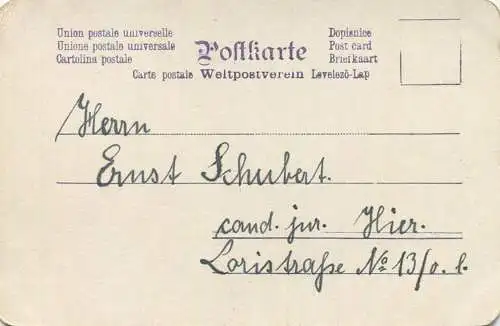 Union postale universelle
Unione postale universale
Cartolina postale
Postkarte
Dopisnice
Post card
Briefkaart
Carte postale Weltpostverein Levelezö-Lap
Herrn
Ernst Schubert.
cand. jur. Hier.
Loristraße No 13/o. l.